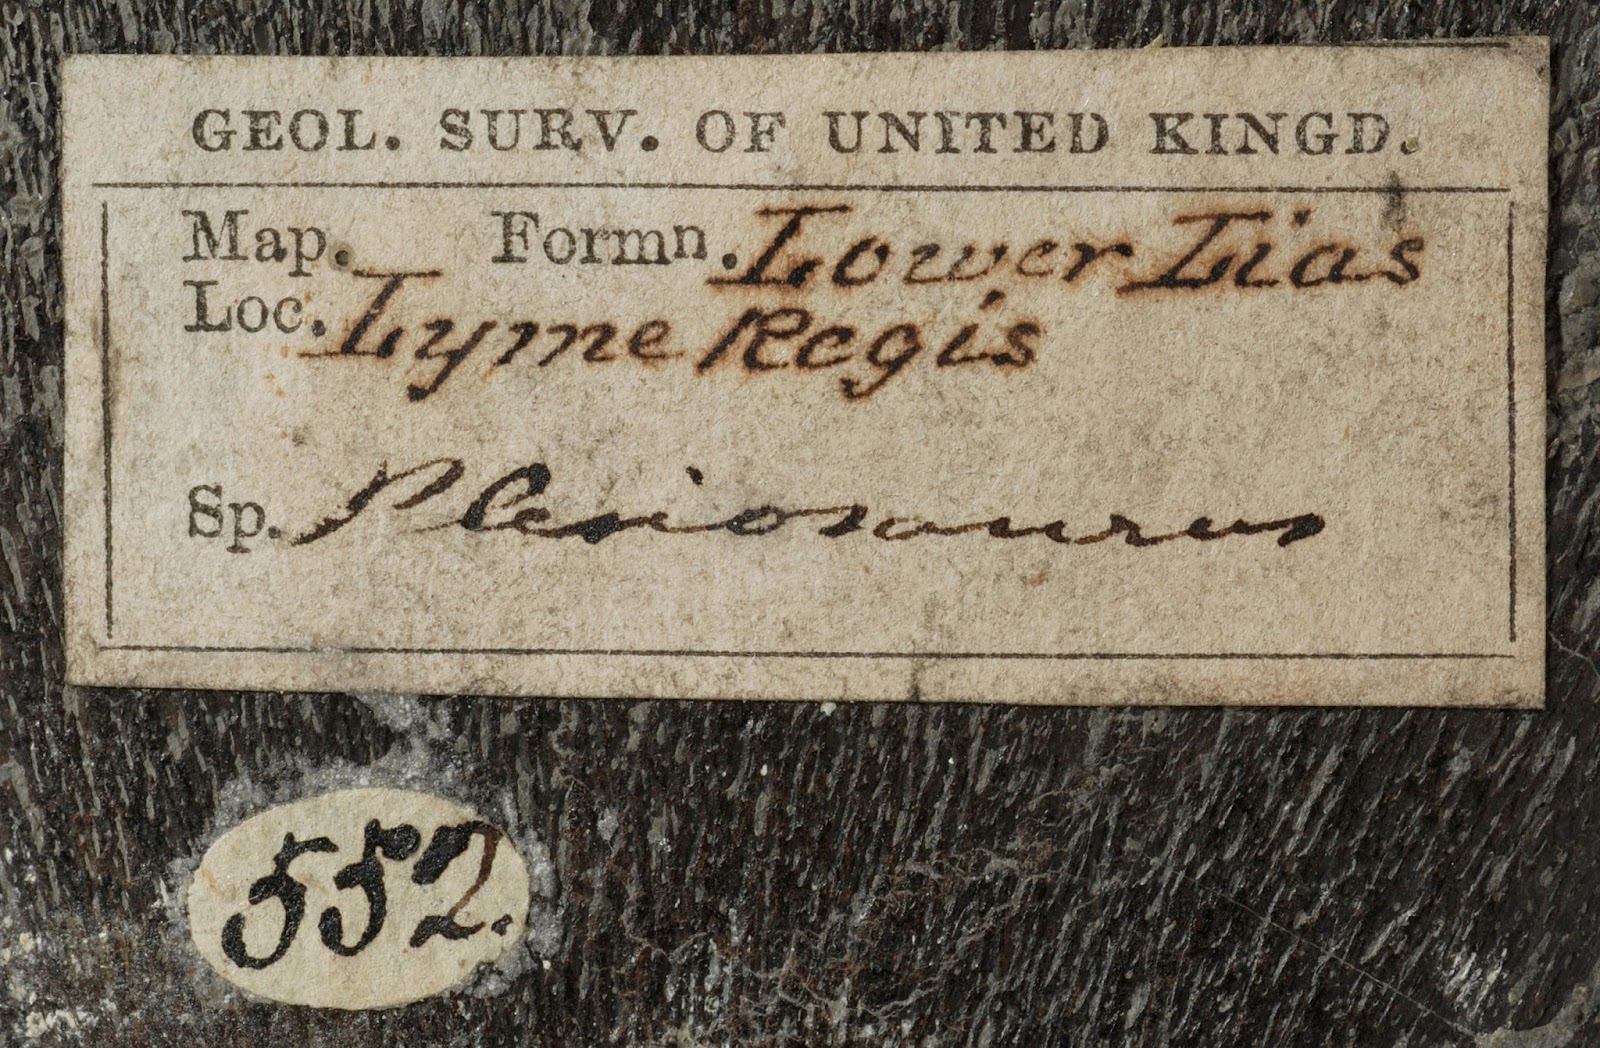 GEOL. SURV. OF UNITED KINGD.
Map. Formn. Lower Lias
Loc. Lyme Regis
Sp. Plesiosaurus
552.